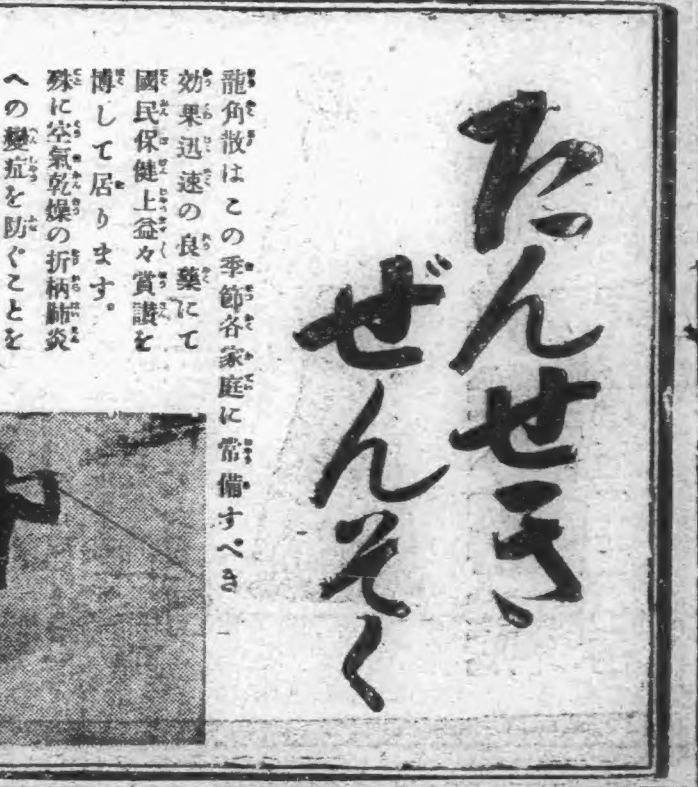 たんせき
ぜんそく
龍角散はこの季節各家庭に常備すべき
効果迅速の良藥にて
國民保健上益々賞讃を
博して居ります。
殊に空氣乾燥の折柄肺炎
への變症を防ぐことを